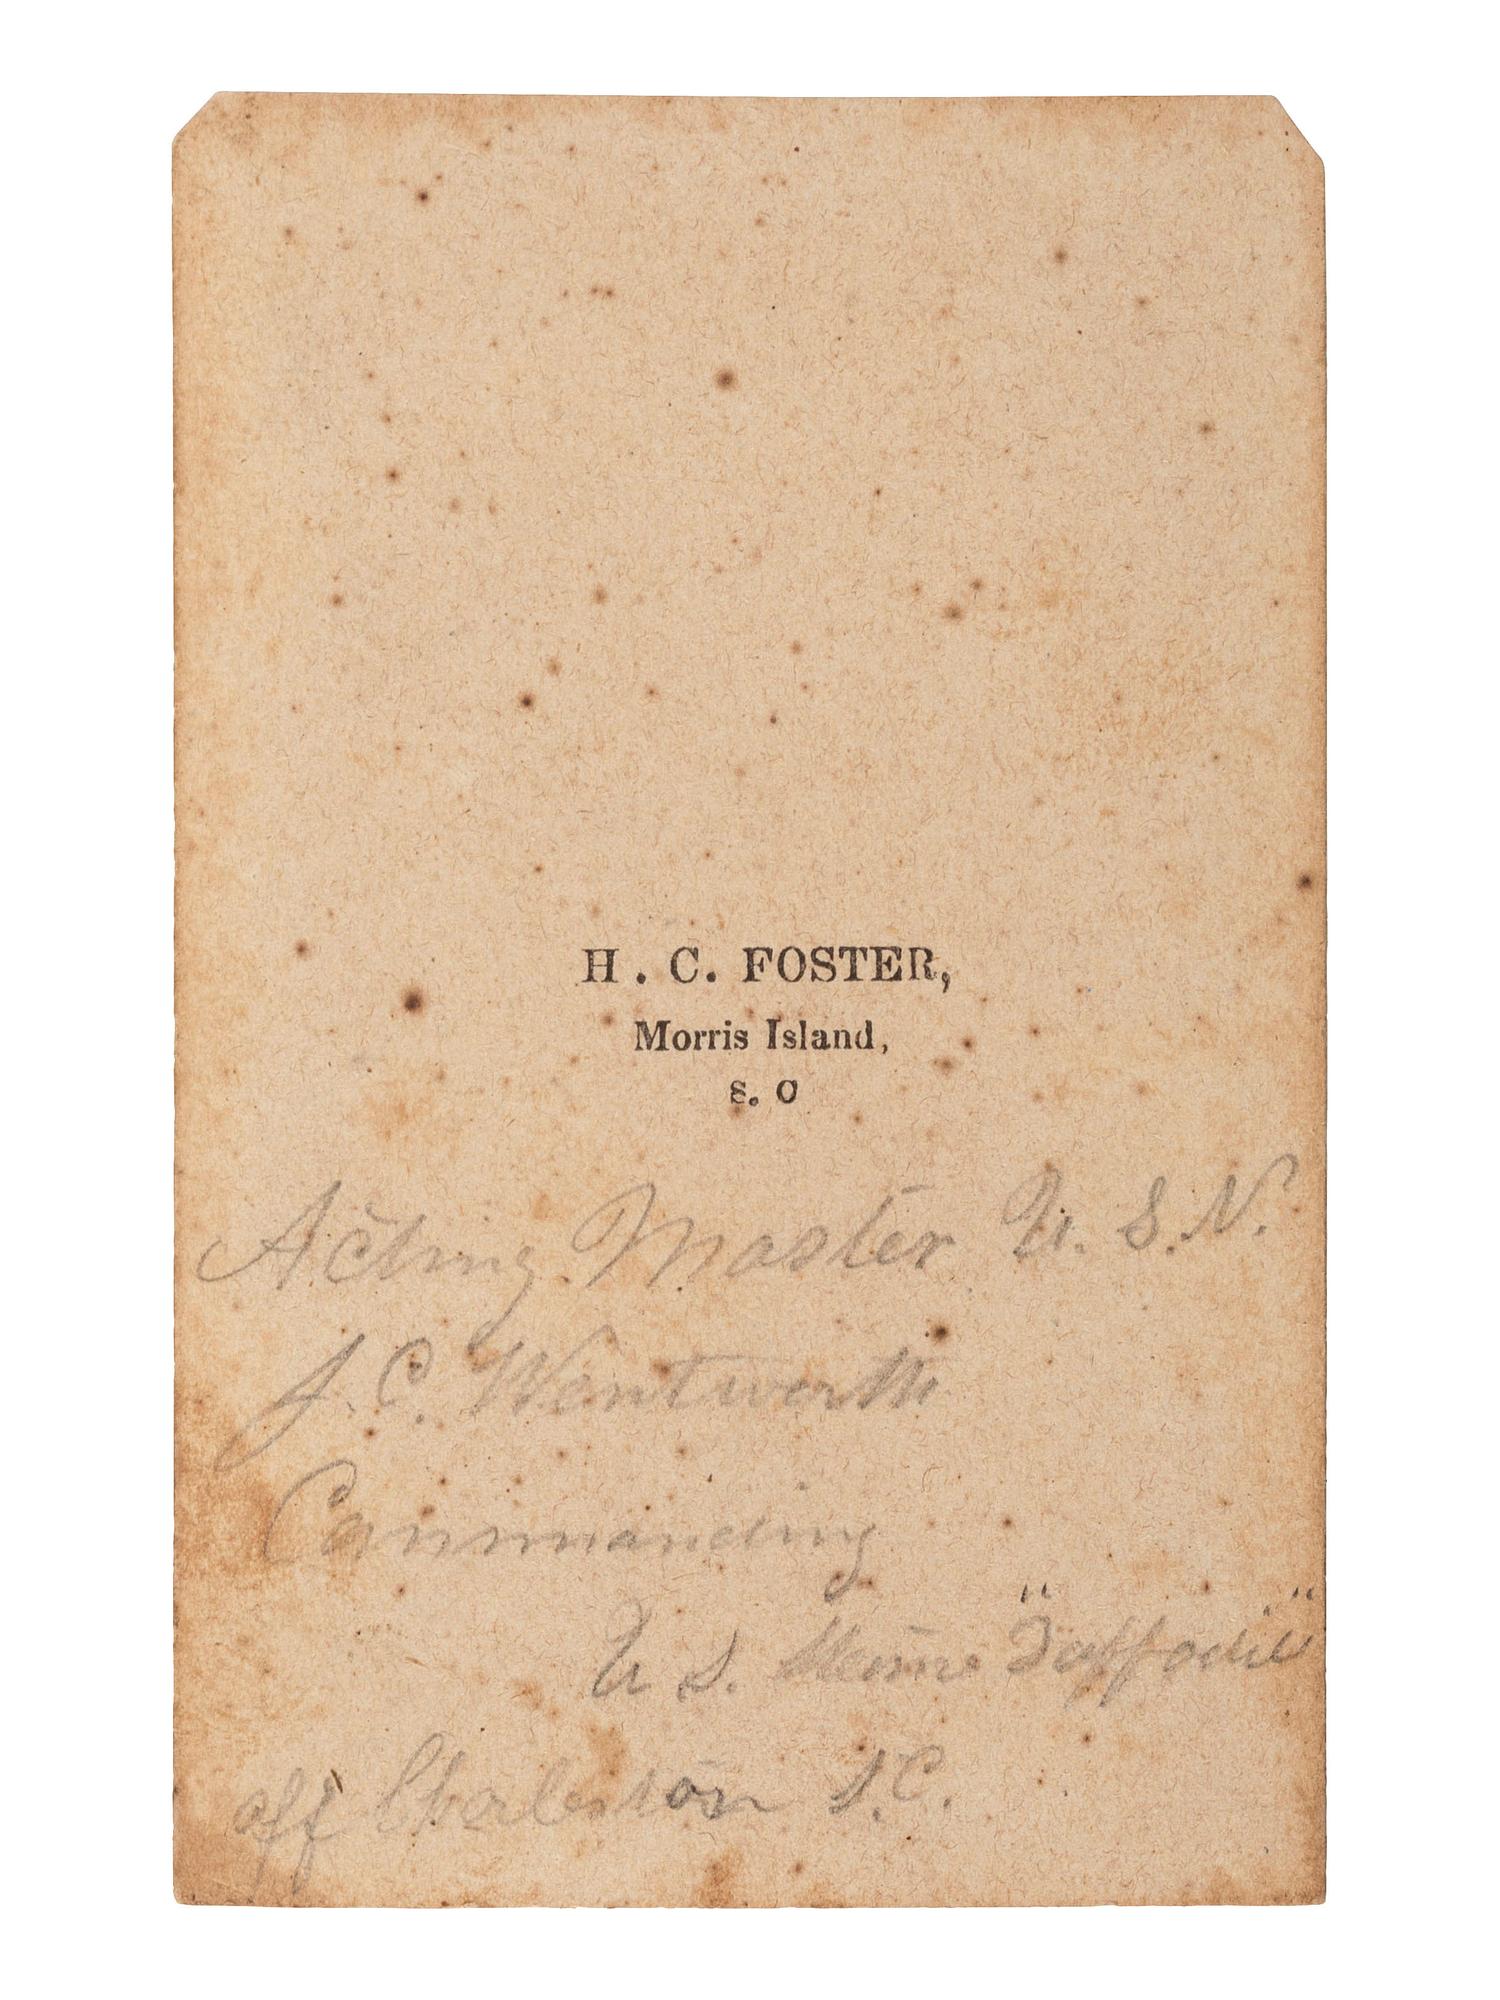 H. C. FOSTER,
Morris Island,
S. C
Acting Master U. S. N.
J. C. Wentworth
Commanding
U S. "Daffodil"
off Charleston S.C.